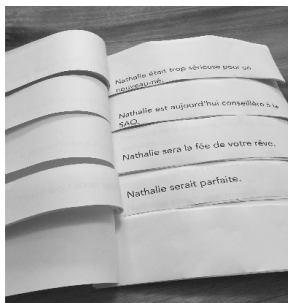 Nathalie était trop sérieuse pour un
nouveau-né.
Nathalie est aujourd'hui conseillère à la
SAQ.
Nathalie sera la fée de votre rêve.
Nathalie serait parfaite.